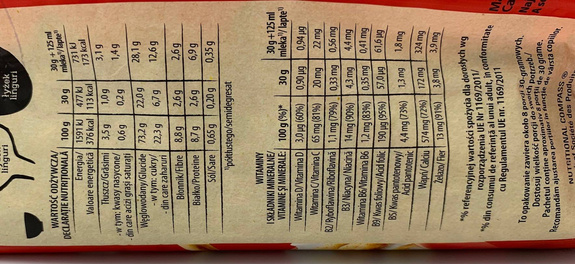 łyżek
linguri
linguri
WARTOŚĆ ODŻYWCZA/ 100 g 30 g 30 g +125 ml
DECLARAȚIE NUTRIȚIONALĂ mleka¹⁾/lapte¹⁾
Energia/ 1591 kJ 477 kJ 731 kJ
Valoare energetică 376 kcal 113 kcal 173 kcal
Tłuszcz/Grăsimi 3,5 g 1,0 g 3,1 g
- w tym: kwasy nasycone/ 0,6 g 0,2 g 1,4 g
- din care acizi grași saturați
Węglowodany/Glucide 73,2 g 22,0 g 28,1 g
- w tym: cukry/ 22,3 g 6,7 g 12,6 g
- din care zaharuri
Błonnik/Fibre 8,8 g 2,6 g 2,6 g
Białko/Proteine 8,7 g 2,6 g 6,9 g
Sól/Sare 0,65 g 0,20 g 0,35 g
¹⁾półtłustego/semidegresat
WITAMINY
I SKŁADNIKI MINERALNE/ 30 g +125 ml
VITAMINE ȘI MINERALE 100 g (%)* 30 g mleka¹⁾/lapte¹⁾
Witamina D/Vitamina D 3,0 µg (60%) 0,90 µg 0,94 µg
Witamina C/Vitamina C 65 mg (81%) 20 mg 22 mg
B2/ Ryboflawina/Riboflavină 0,33 mg 0,56 mg
B3/ Niacyna/Niacină 14 mg (90%) 4,3 mg 4,4 mg
Witamina B6/Vitamina B6 1,2 mg 0,35 mg 0,41 mg
B9/ Kwas foliowy/Acid folic 190 µg (95%) 57,0 µg 61,6 µg
B5/ Kwas pantotenowy/ 4,4 mg (73%) 1,3 mg 1,8 mg
Acid pantotenic
Wapń/ Calciu 574 mg (72%) 172 mg 324 mg
Żelazo/ Fier 13 mg (91%) 3,8 mg 3,9 mg
*% referencyjnej wartości spożycia dla dorosłych wg
rozporządzenia UE Nr 1169/2011/
*% din consumul de referință al unui adult, în conformitate
cu Regulamentul UE nr. 1169/2011
To opakowanie zawiera około 8 30-gramowych.
Dostosuj wielkość porcji do
Pachetul conține aproximativ porții de 30 grame.
Recomandăm ajustarea porțiilor în funcție de vârsta copiilor
NUTRITIONAL COMPASS®